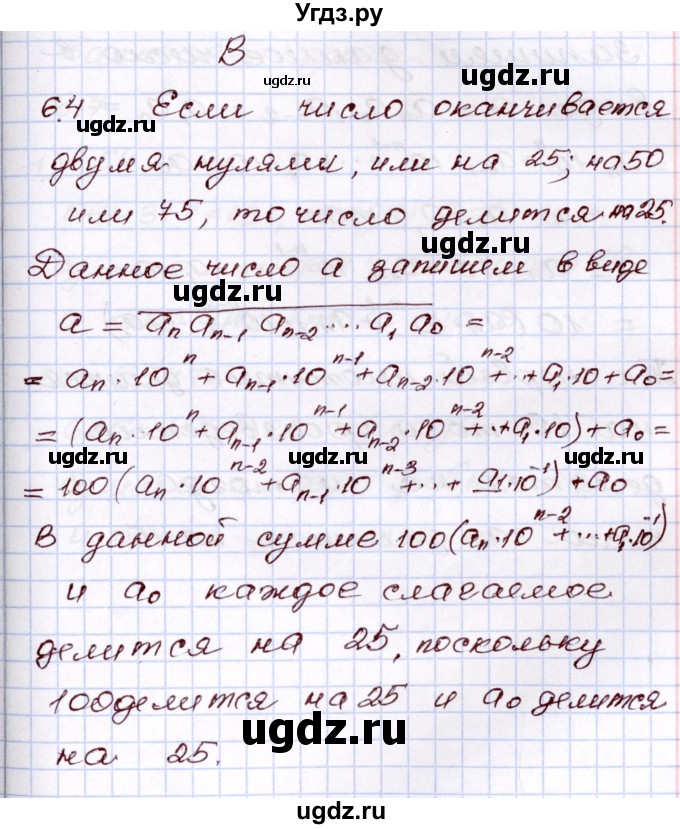 Угдз.ру
В
ugdz.ru ugdz.ru
6.4 Если число оканчивается
ugdz.ru
двумя нулями, или на 25; на 50
ugdz.ru
или 75, то число делится на 25.
ugdz.ru
Данное число а запишем в виде
ugdz.ru
a = aₙ aₙ₋₁ aₙ₋₂ ... a₁ a₀ =
= aₙ·10ⁿ + aₙ₋₁·10ⁿ⁻¹ + aₙ₋₂·10ⁿ⁻² + .. + a₁·10 + a₀ =
= (aₙ·10ⁿ + aₙ₋₁·10ⁿ⁻¹ + aₙ₋₂·10ⁿ⁻² + .. + a₁·10) + a₀ =
ugdz.ru ugdz.ru
= 100 (aₙ·10ⁿ⁻² + aₙ₋₁·10ⁿ⁻³ + ... + a₁·10⁻¹) + a₀
В данной сумме 100 (aₙ·10ⁿ⁻² + ... + a₁·10⁻¹)
и a₀ каждое слагаемое
ugdz.ru
делится на 25, поскольку
100 делится на 25 и a₀ делится
ugdz.ru
на 25.
ugdz.ru